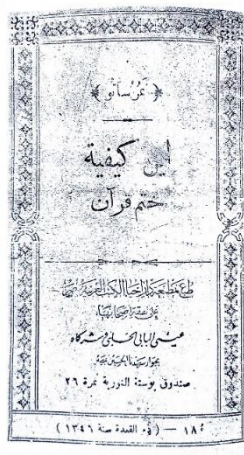 ﴿ نمرساتو ﴾
اين كيفية
ختم قرآن
طبع بمطبعة دار احيا الكتب العربية
على نفقة اصحابها
عيسى البابي الحلبي وشركاه
بجوار سيدنا الحسين
صندوق بوستة الغورية نمرة ٢٦
( ذى القعدة سنة ١٣٤٦ )